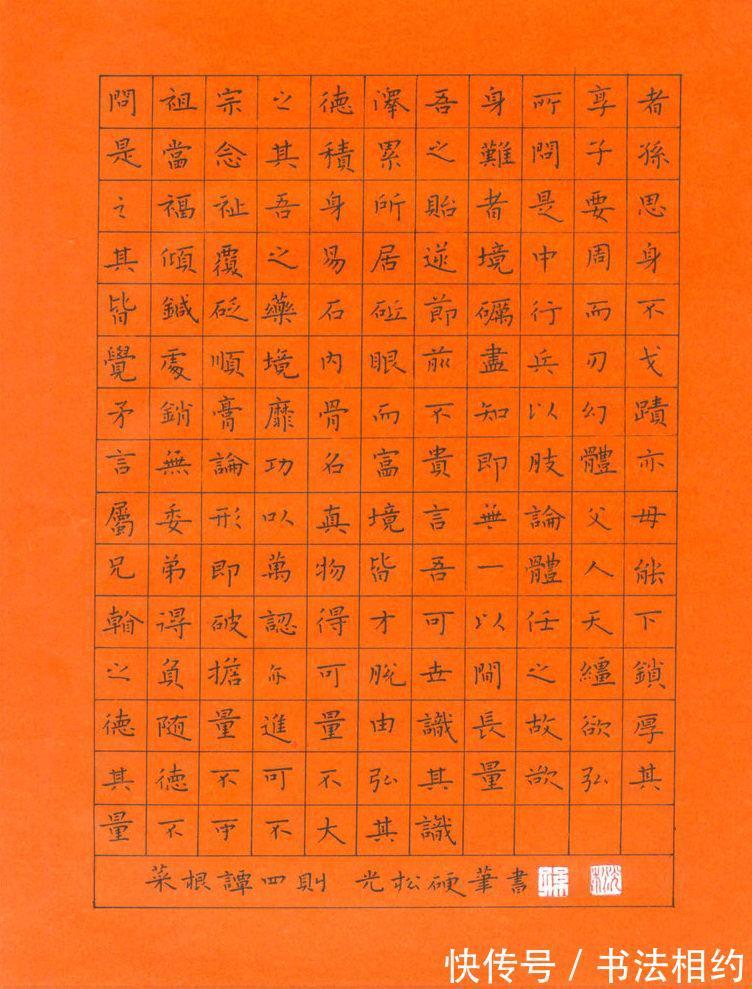 問祖宗之德澤吾身所享者
是當念其積累之難問子孫
之福祉吾身所貽者是要思
其傾覆之易居逆境中周身
皆鍼砭藥石砥節礪行而不
覺處順境内眼前盡兵刃戈
矛銷膏靡骨而不知以幻蹟
言無論功名富貴即肢體亦
屬委形以真境言無論父母
兄弟即萬物皆吾一體人能
得破認得才可以任天下
之負擔亦可脫世間之繮鎖
德随量進量由識長故欲厚
其德不可不弘其量欲弘其
量不可不大其識
菜根譚四則 光松硬筆書
快传号 / 书法相约